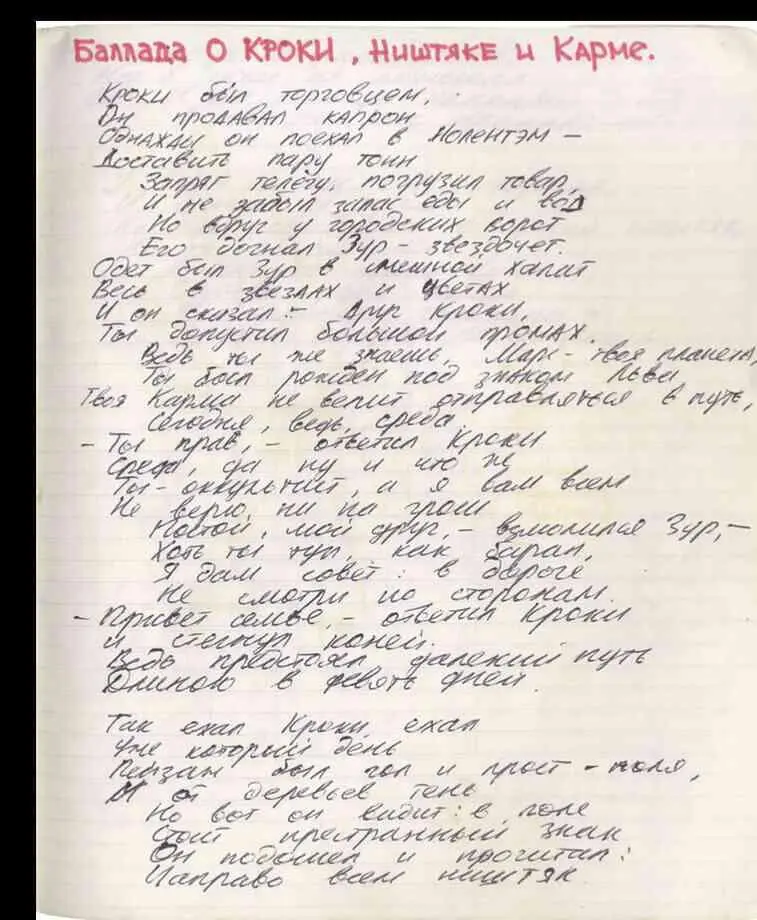 Баллада о Кроки, Ништяке и Карме.
Кроки был торговцем,
Он продавал капрон
Однажды он поехал в Нолентэм –
Доставить пару тонн
Запряг телегу, погрузил товар,
И не забыл запас еды и вод
Но вдруг у городских ворот
Его догнал Зур – звездочет.
Одет был Зур в смешной халат
Весь в звездах и цветах
И он сказал: – Друг Кроки,
Ты допустил большой промах.
Ведь ты же знаешь, Марс – твоя планета,
Ты был рожден под знаком Льва
Твоя Карма не велит отправляться в путь,
Сегодня, ведь, среда
– Ты прав, – ответил Кроки
Среда, да ну и что ж
Ты – оккультист, а я вам всем
Не верю, ни на грош
Постой, мой друг, – взмолился Зур, –
Хоть ты туп, как баран,
Я дам совет: в дороге
Не смотри по сторонам.
– Привет семье, – ответил Кроки
и стегнул коней.
Ведь предстоял далекий путь
Длиною в девять дней.
Так ехал Кроки, ехал
Уже который день
Пейзаж был гол и прост – поля,
И от деревьев тень
Но вот он видит: в поле
Стоит престранный знак
Он подошел и прочитал:
Направо всем ништяк